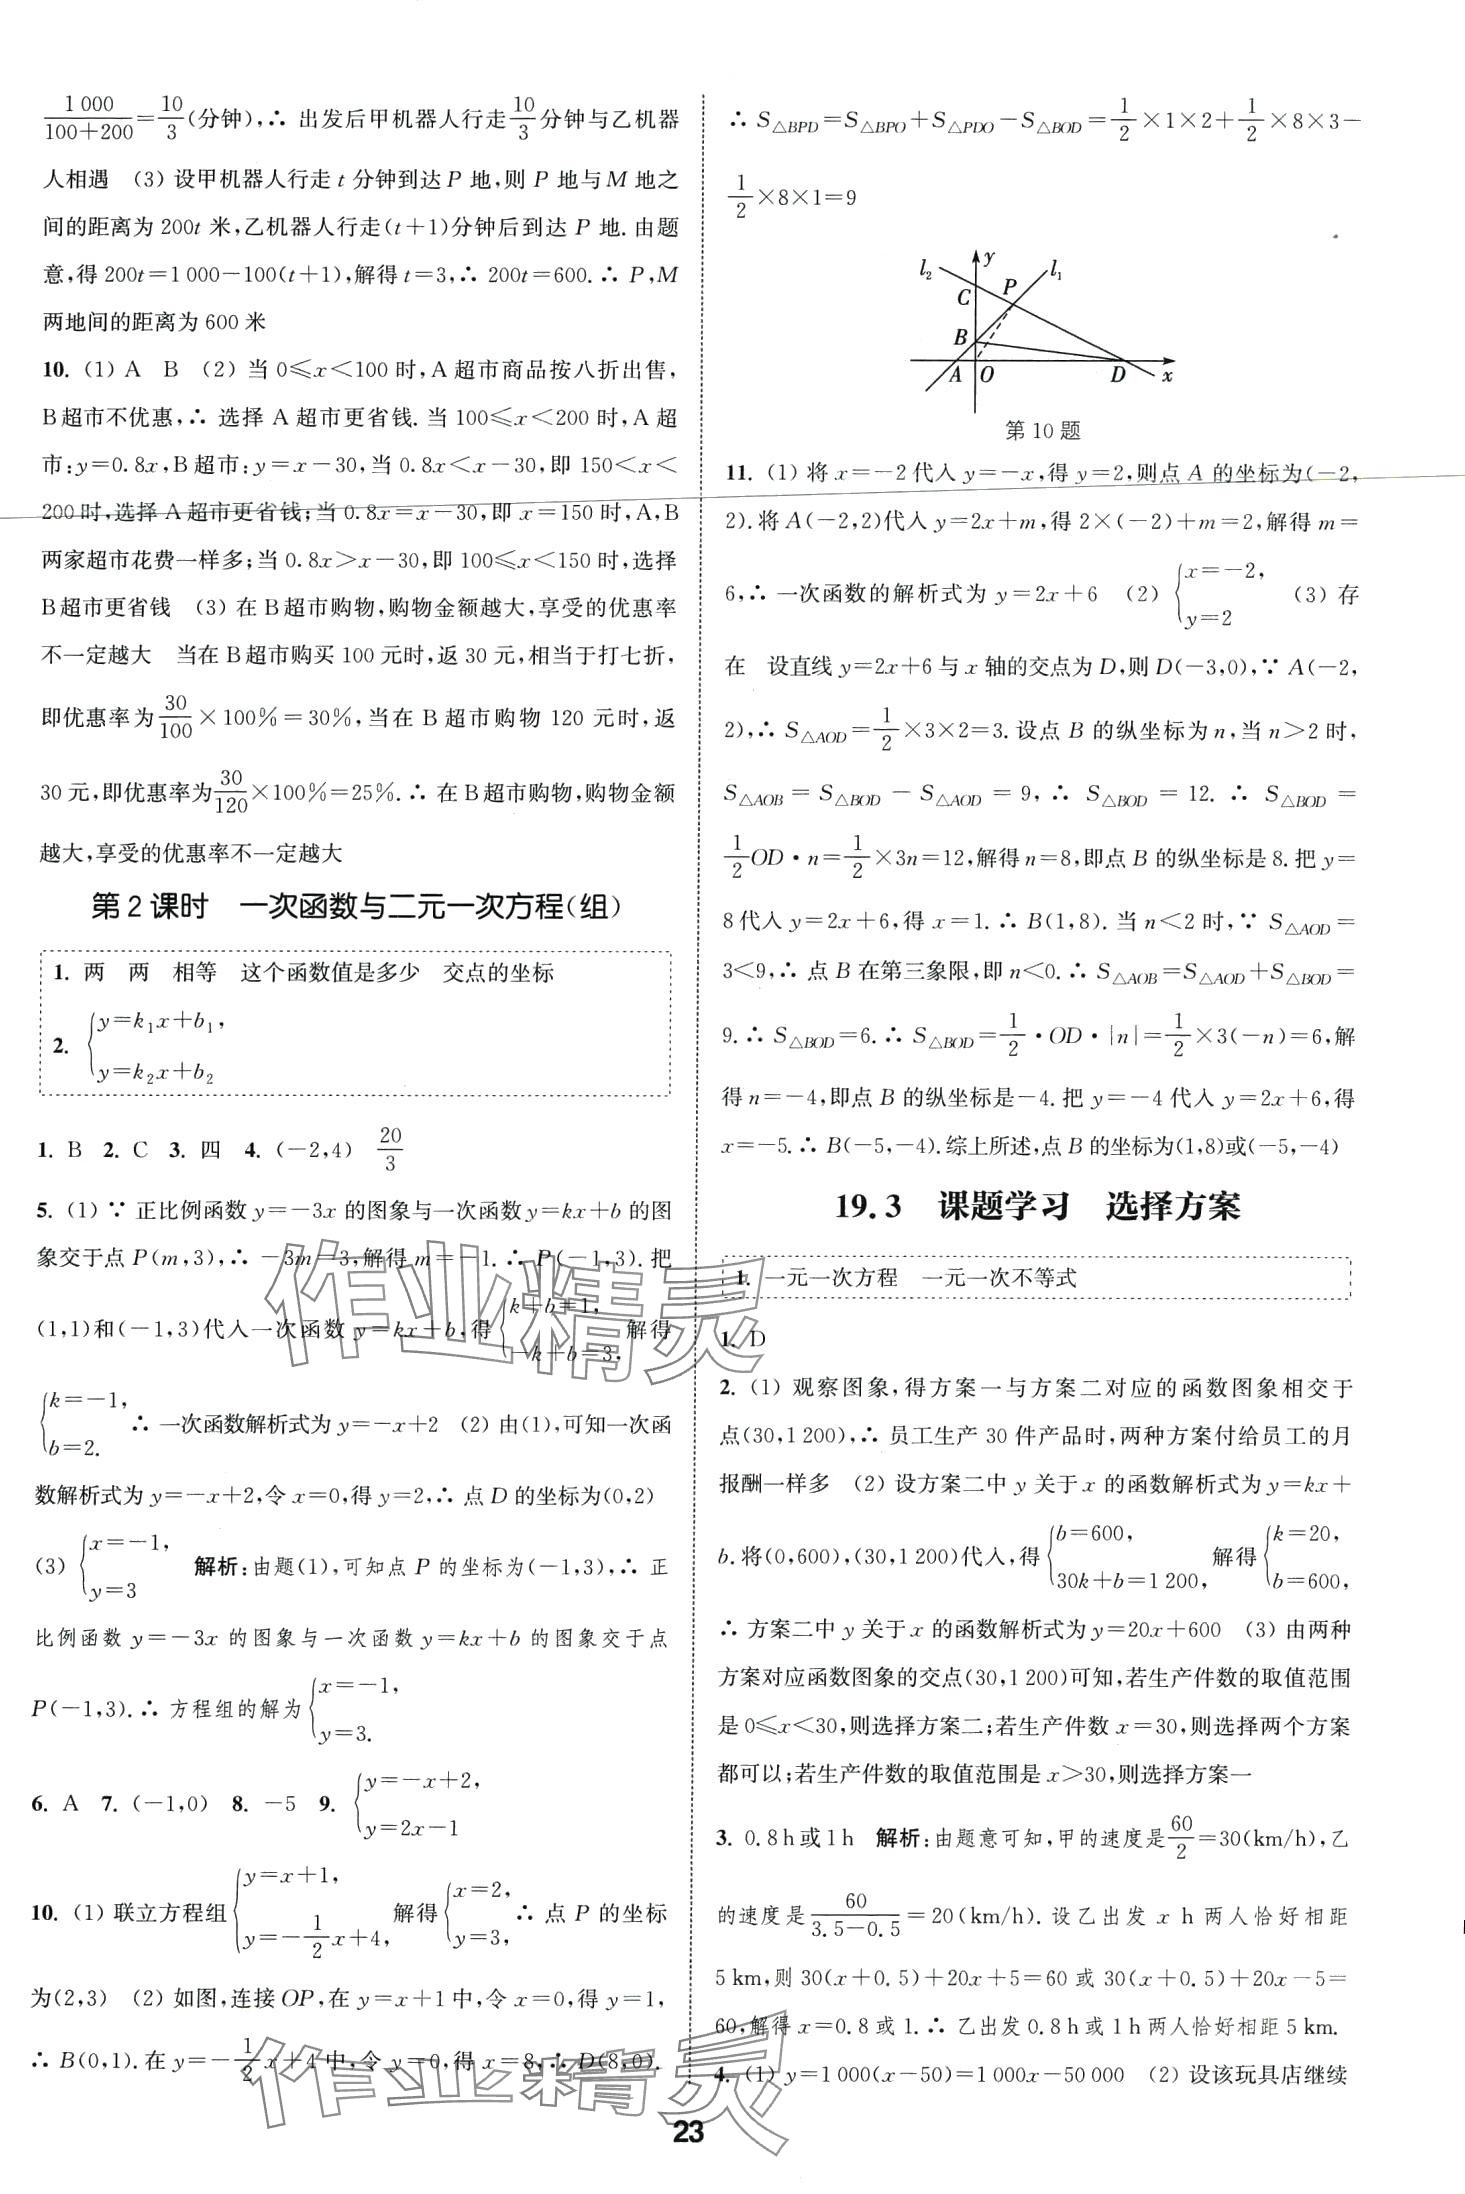 1 000/(100+200)=10/3(分钟),∴ 出发后甲机器人行走10/3分钟与乙机器
人相遇 (3) 设甲机器人行走 t 分钟到达 P 地,则 P 地与 M 地之
间的距离为 200t 米,乙机器人行走(t+1)分钟后到达 P 地.由题
意,得 200t=1 000-100(t+1),解得 t=3,∴ 200t=600.∴ P,M
两地间的距离为 600 米
10. (1) A B (2) 当 0≤x<100 时,A 超市商品按八折出售,
B超市不优惠,∴ 选择 A 超市更省钱.当 100≤x<200 时,A 超
市:y=0.8x,B超市:y=x-30,当 0.8x<x-30,即 150<x<
200 时,选择 A 超市更省钱;当 0.8x=x-30,即 x=150 时,A,B
两家超市花费一样多;当 0.8x>x-30,即 100≤x<150 时,选择
B超市更省钱 (3) 在 B超市购物,购物金额越大,享受的优惠率
不一定越大 当在 B超市购买 100 元时,返 30 元,相当于打七折,
即优惠率为30/100×100%=30%,当在 B 超市购物 120 元时,返
30 元,即优惠率为30/120×100%=25%.∴ 在 B超市购物,购物金额
越大,享受的优惠率不一定越大
第 2 课时 一次函数与二元一次方程(组)
1. 两 两 相等 这个函数值是多少 交点的坐标
2. {y=k₁x+b₁,
y=k₂x+b₂
1. B 2. C 3. 四 4. (-2,4) 20/3
5. (1) ∵ 正比例函数 y=-3x 的图象与一次函数 y=kx+b 的图
象交于点 P(m,3),∴ -3m=3,解得 m=-1.∴ P(-1,3).把
(1,1)和(-1,3)代入一次函数 y=kx+b,得{k+b=1, -k+b=3, 解得
{k=-1, b=2. ∴ 一次函数解析式为 y=-x+2 (2) 由(1),可知一次函
数解析式为 y=-x+2,令 x=0,得 y=2,∴ 点 D 的坐标为(0,2)
(3) {x=-1, y=3 解析:由题(1),可知点 P 的坐标为(-1,3),∴ 正
比例函数 y=-3x 的图象与一次函数 y=kx+b 的图象交于点
P(-1,3).∴ 方程组的解为{x=-1, y=3.
6. A 7. (-1,0) 8. -5 9. {y=-x+2, y=2x-1
10. (1) 联立方程组{y=x+1, y=-1/2x+4, 解得{x=2, y=3, ∴ 点 P 的坐标
为(2,3) (2) 如图,连接 OP,在 y=x+1 中,令 x=0,得 y=1,
∴ B(0,1).在 y=-1/2x+4 中,令 y=0,得 x=8,∴ D(8,0).
∴ S△BPD=S△BPO+S△PDO-S△BOD=1/2×1×2+1/2×8×3-
1/2×8×1=9
l₂ y P l₁
C
B
A O D x
第 10 题
11. (1) 将 x=-2代入 y=-x,得 y=2,则点 A 的坐标为(-2,
2).将 A(-2,2)代入 y=2x+m,得 2×(-2)+m=2,解得 m=
6,∴ 一次函数的解析式为 y=2x+6 (2) {x=-2, y=2 (3) 存
在 设直线 y=2x+6 与 x 轴的交点为 D,则 D(-3,0),∵ A(-2,
2),∴ S△AOD=1/2×3×2=3.设点 B 的纵坐标为 n,当 n>2 时,
S△AOB=S△BOD-S△AOD=9,∴ S△BOD=12.∴ S△BOD=
1/2OD·n=1/2×3n=12,解得 n=8,即点 B 的纵坐标是 8.把 y=
8代入 y=2x+6,得 x=1.∴ B(1,8).当 n<2 时,∵ S△AOD=
3<9,∴ 点 B 在第三象限,即 n<0.∴ S△AOB=S△AOD+S△BOD=
9.∴ S△BOD=6.∴ S△BOD=1/2·OD·|n|=1/2×3(-n)=6,解
得 n=-4,即点 B 的纵坐标是-4.把 y=-4 代入 y=2x+6,得
x=-5.∴ B(-5,-4).综上所述,点 B 的坐标为(1,8)或(-5,-4)
19.3 课题学习 选择方案
1. 一元一次方程 一元一次不等式
1. D
2. (1) 观察图象,得方案一与方案二对应的函数图象相交于
点(30,1 200),∴ 员工生产 30 件产品时,两种方案付给员工的月
报酬一样多 (2) 设方案二中 y 关于 x 的函数解析式为 y=kx+
b.将(0,600),(30,1 200)代入,得{b=600, 30k+b=1 200, 解得{k=20, b=600,
∴ 方案二中 y 关于 x 的函数解析式为 y=20x+600 (3) 由两种
方案对应函数图象的交点(30,1 200)可知,若生产件数的取值范围
是 0≤x<30,则选择方案二;若生产件数 x=30,则选择两个方案
都可以;若生产件数的取值范围是 x>30,则选择方案一
3. 0.8 h 或 1 h 解析:由题意可知,甲的速度是60/2=30(km/h),乙
的速度是60/(3.5-0.5)=20(km/h).设乙出发 x h 两人恰好相距
5 km,则 30(x+0.5)+20x+5=60 或 30(x+0.5)+20x-5=
60,解得 x=0.8或 1.∴ 乙出发 0.8 h 或 1 h 两人恰好相距 5 km.
4. (1) y=1 000(x-50)=1 000x-50 000 (2) 设该玩具店继续
作业精灵
作业精灵
23